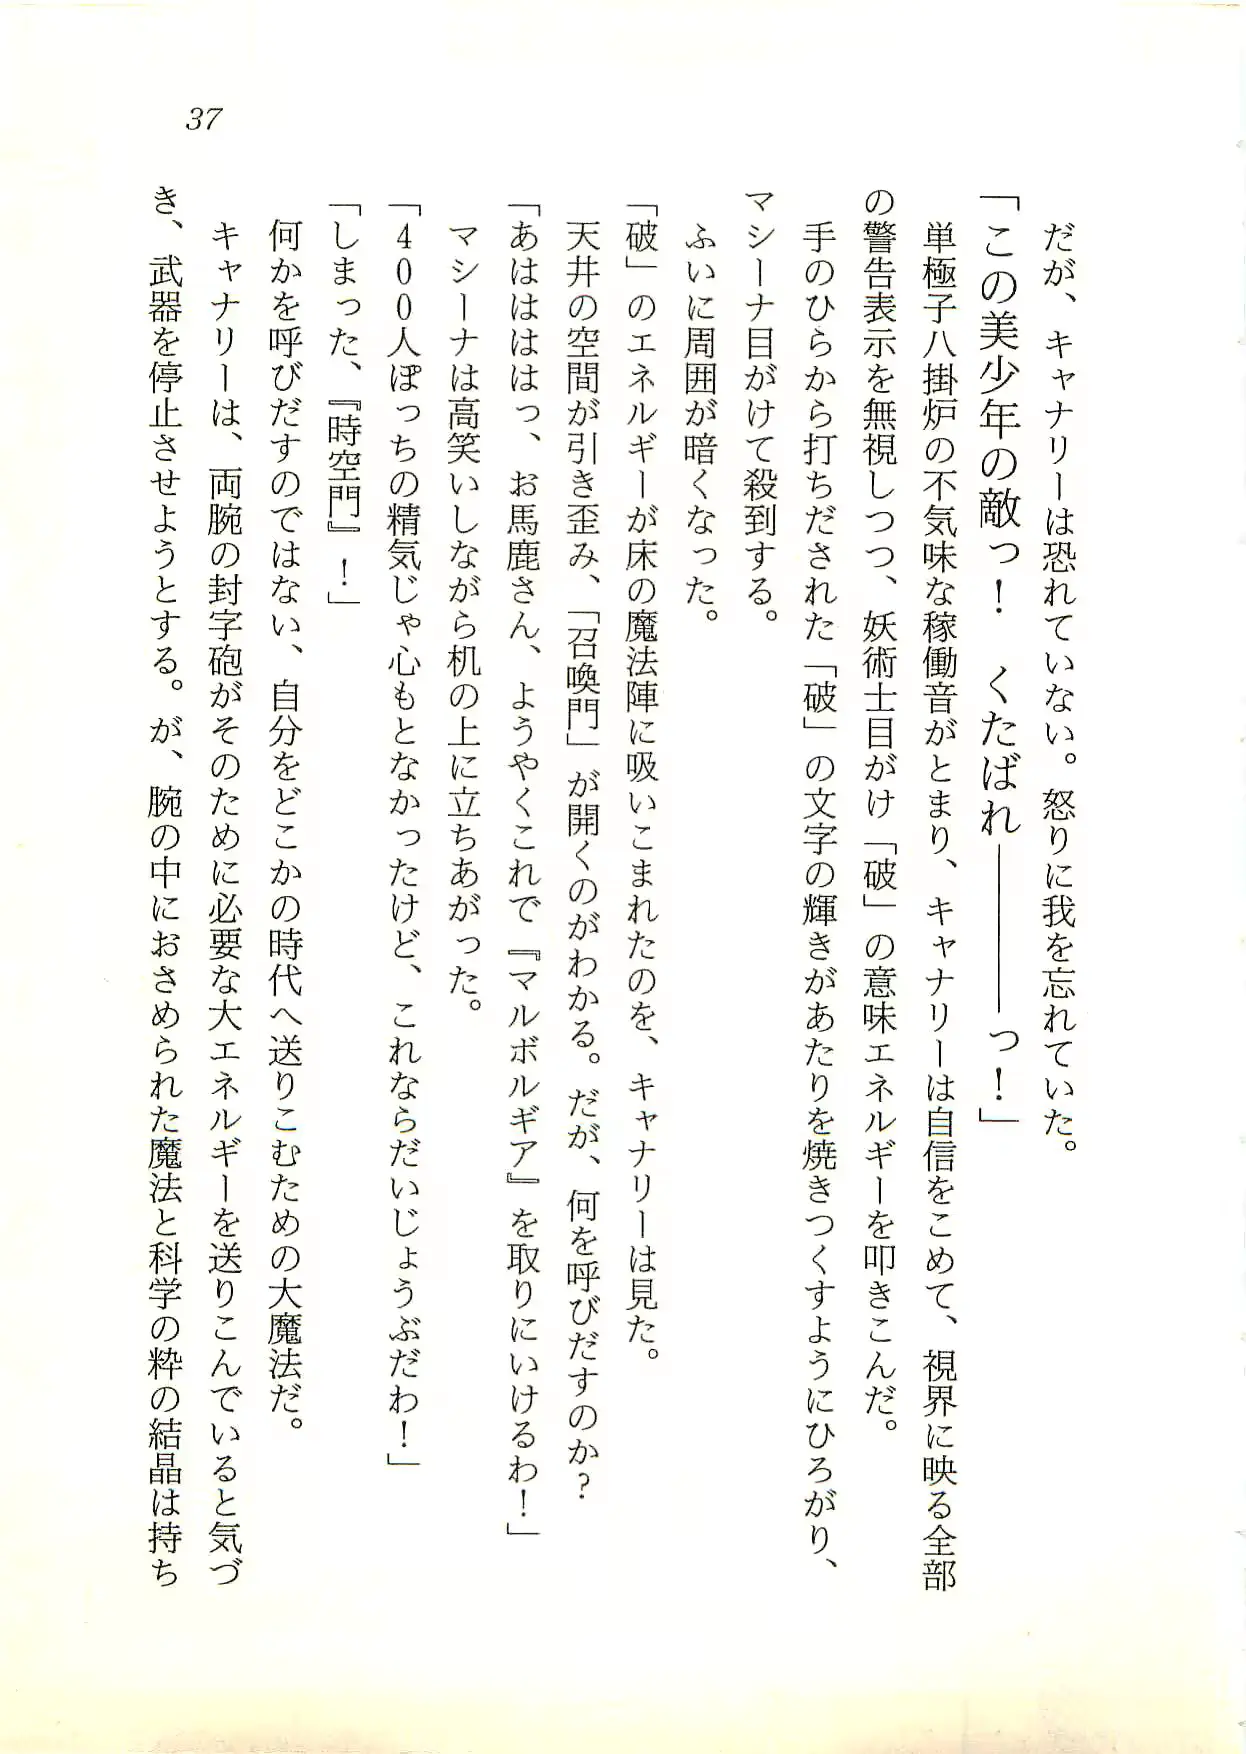 37
だが、キャナリーは恐れていない。怒りに我を忘れていた。
「この美少年の敵っ！　くたばれ――――っ！」
単極子八掛炉の不気味な稼働音がとまり、キャナリーは自信をこめて、視界に映る全部
の警告表示を無視しつつ、妖術士目がけ「破」の意味エネルギーを叩きこんだ。
手のひらから打ちだされた「破」の文字の輝きがあたりを焼きつくすようにひろがり、
マシーナ目がけて殺到する。
ふいに周囲が暗くなった。
「破」のエネルギーが床の魔法陣に吸いこまれたのを、キャナリーは見た。
天井の空間が引き歪み、「召喚門」が開くのがわかる。だが、何を呼びだすのか？
「あはははっ、お馬鹿さん、ようやくこれで『マルボルギア』を取りにいけるわ！」
マシーナは高笑いしながら机の上に立ちあがった。
「４００人ぽっちの精気じゃ心もとなかったけど、これならだいじょうぶだわ！」
「しまった、『時空門』！」
何かを呼びだすのではない、自分をどこかの時代へ送りこむための大魔法だ。
キャナリーは、両腕の封字砲がそのために必要な大エネルギーを送りこんでいると気づ
き、武器を停止させようとする。が、腕の中におさめられた魔法と科学の粋の結晶は持ち